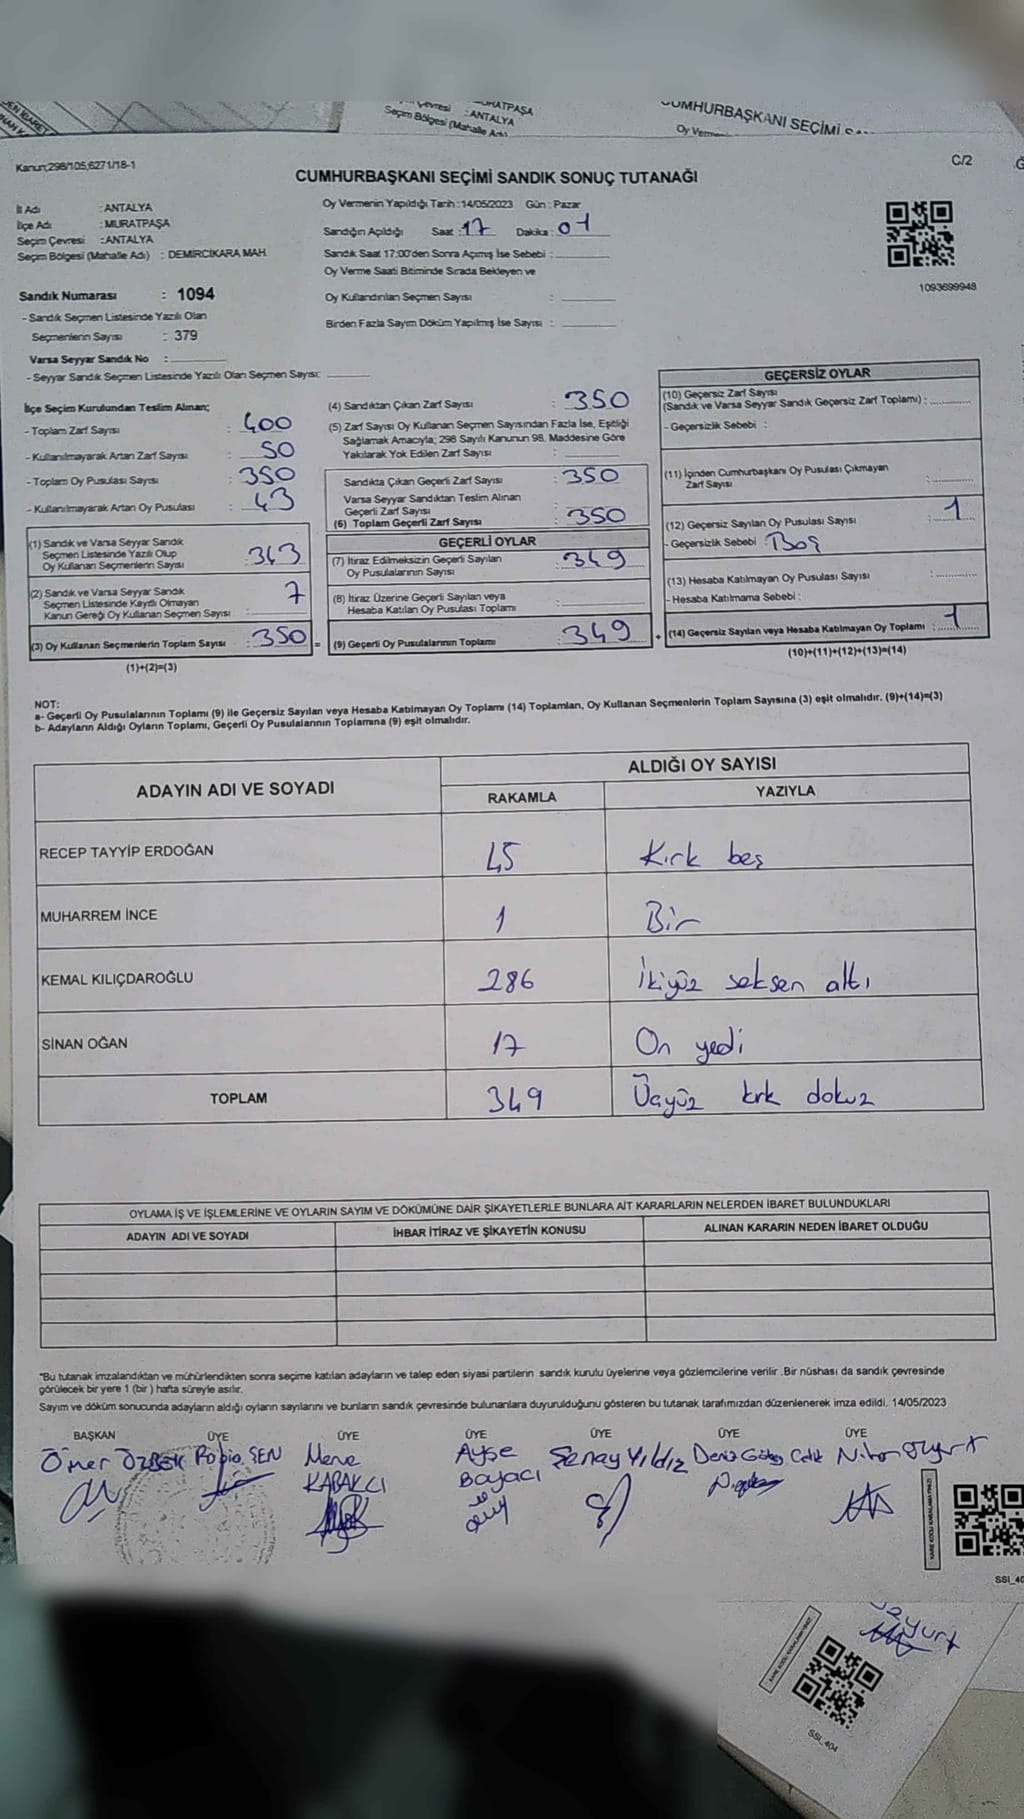 MURATPAŞA
Çevresi : ANTALYA
Seçim Bölgesi (Mahalle Adı)
CUMHURBAŞKANI SEÇİMİ
Oy Vermenin
Kanun;298/105,6271/18-1
C/2
CUMHURBAŞKANI SEÇİMİ SANDIK SONUÇ TUTANAĞI
İl Adı : ANTALYA
İlçe Adı : MURATPAŞA
Seçim Çevresi : ANTALYA
Seçim Bölgesi (Mahalle Adı) : DEMİRCİKARA MAH.
Oy Vermenin Yapıldığı Tarih :14/05/2023 Gün : Pazar
Sandığın Açıldığı Saat : 17 Dakika : 01
Sandık Saat 17:00'den Sonra Açımış İse Sebebi :
Oy Verme Saati Bitiminde Sırada Bekleyen ve
Oy Kullandırılan Seçmen Sayısı :
Birden Fazla Sayım Döküm Yapılmış İse Sayısı :
1093699948
Sandık Numarası : 1094
- Sandık Seçmen Listesinde Yazılı Olan
Seçmenlerin Sayısı : 379
Varsa Seyyar Sandık No :
- Seyyar Sandık Seçmen Listesinde Yazılı Olan Seçmen Sayısı:
İlçe Seçim Kurulundan Teslim Alınan;
- Toplam Zarf Sayısı : 400
- Kullanılmayarak Artan Zarf Sayısı : 50
- Toplam Oy Pusulası Sayısı : 350
- Kullanılmayarak Artan Oy Pusulası : 43
(1) Sandık ve Varsa Seyyar Sandık
Seçmen Listesinde Yazılı Olup
Oy Kullanan Seçmenlerin Sayısı : 343
(2) Sandık ve Varsa Seyyar Sandık
Seçmen Listesinde Kayıtlı Olmayan
Kanun Gereği Oy Kullanan Seçmen Sayısı : 7
(3) Oy Kullanan Seçmenlerin Toplam Sayısı : 350 =
(1)+(2)=(3)
(4) Sandıktan Çıkan Zarf Sayısı : 350
(5) Zarf Sayısı Oy Kullanan Seçmen Sayısından Fazla İse, Eşitliği
Sağlamak Amacıyla; 298 Sayılı Kanunun 98. Maddesine Göre
Yakılarak Yok Edilen Zarf Sayısı :
Sandıkta Çıkan Geçerli Zarf Sayısı : 350
Varsa Seyyar Sandıktan Teslim Alınan
Geçerli Zarf Sayısı :
(6) Toplam Geçerli Zarf Sayısı : 350
GEÇERLİ OYLAR
(7) İtiraz Edilmeksizin Geçerli Sayılan
Oy Pusulalarının Sayısı : 349
(8) İtiraz Üzerine Geçerli Sayılan veya
Hesaba Katılan Oy Pusulası Toplamı :
(9) Geçerli Oy Pusulalarının Toplamı : 349 +
GEÇERSİZ OYLAR
(10) Geçersiz Zarf Sayısı
(Sandık ve Varsa Seyyar Sandık Geçersiz Zarf Toplamı) :
- Geçersizlik Sebebi :
(11) İçinden Cumhurbaşkanı Oy Pusulası Çıkmayan
Zarf Sayısı :
(12) Geçersiz Sayılan Oy Pusulası Sayısı : 1
- Geçersizlik Sebebi : Boş
(13) Hesaba Katılmayan Oy Pusulası Sayısı :
- Hesaba Katılmama Sebebi :
(14) Geçersiz Sayılan veya Hesaba Katılmayan Oy Toplamı : 1
(10)+(11)+(12)+(13)=(14)
NOT:
a- Geçerli Oy Pusulalarının Toplamı (9) ile Geçersiz Sayılan veya Hesaba Katılmayan Oy Toplamı (14) Toplamları, Oy Kullanan Seçmenlerin Toplam Sayısına (3) eşit olmalıdır. (9)+(14)=(3)
b- Adayların Aldığı Oyların Toplamı, Geçerli Oy Pusulalarının Toplamına (9) eşit olmalıdır.
ADAYIN ADI VE SOYADI
ALDIĞI OY SAYISI
RAKAMLA YAZIYLA
RECEP TAYYİP ERDOĞAN 45 Kırk beş
MUHARREM İNCE 1 Bir
KEMAL KILIÇDAROĞLU 286 İkiyüz seksen altı
SİNAN OĞAN 17 On yedi
TOPLAM 349 Üçyüz kırk dokuz
OYLAMA İŞ VE İŞLEMLERİNE VE OYLARIN SAYIM VE DÖKÜMÜNE DAİR ŞİKAYETLERLE BUNLARA AİT KARARLARIN NELERDEN İBARET BULUNDUKLARI
ADAYIN ADI VE SOYADI İHBAR İTİRAZ VE ŞİKAYETİN KONUSU ALINAN KARARIN NEDEN İBARET OLDUĞU
"Bu tutanak imzalandıktan ve mühürlendikten sonra seçime katılan adayların ve talep eden siyasi partilerin sandık kurulu üyelerine veya gözlemcilerine verilir .Bir nüshası da sandık çevresinde
görülecek bir yere 1 (bir ) hafta süreyle asılır.
Sayım ve döküm sonucunda adayların aldığı oyların sayılarını ve bunların sandık çevresinde bulunanlara duyurulduğunu gösteren bu tutanak tarafımızdan düzenlenerek imza edildi. 14/05/2023
BAŞKAN ÜYE ÜYE ÜYE ÜYE ÜYE ÜYE
Ömer ÖZBEK ŞEN Merve KARAKCI Ayşe Boyacı Şenay Yıldız Deniz Çelik
KARE KODU KARALAMAYINIZ!
SSI_40
KARE KODU KARALAMAYINIZ!
SSI_404